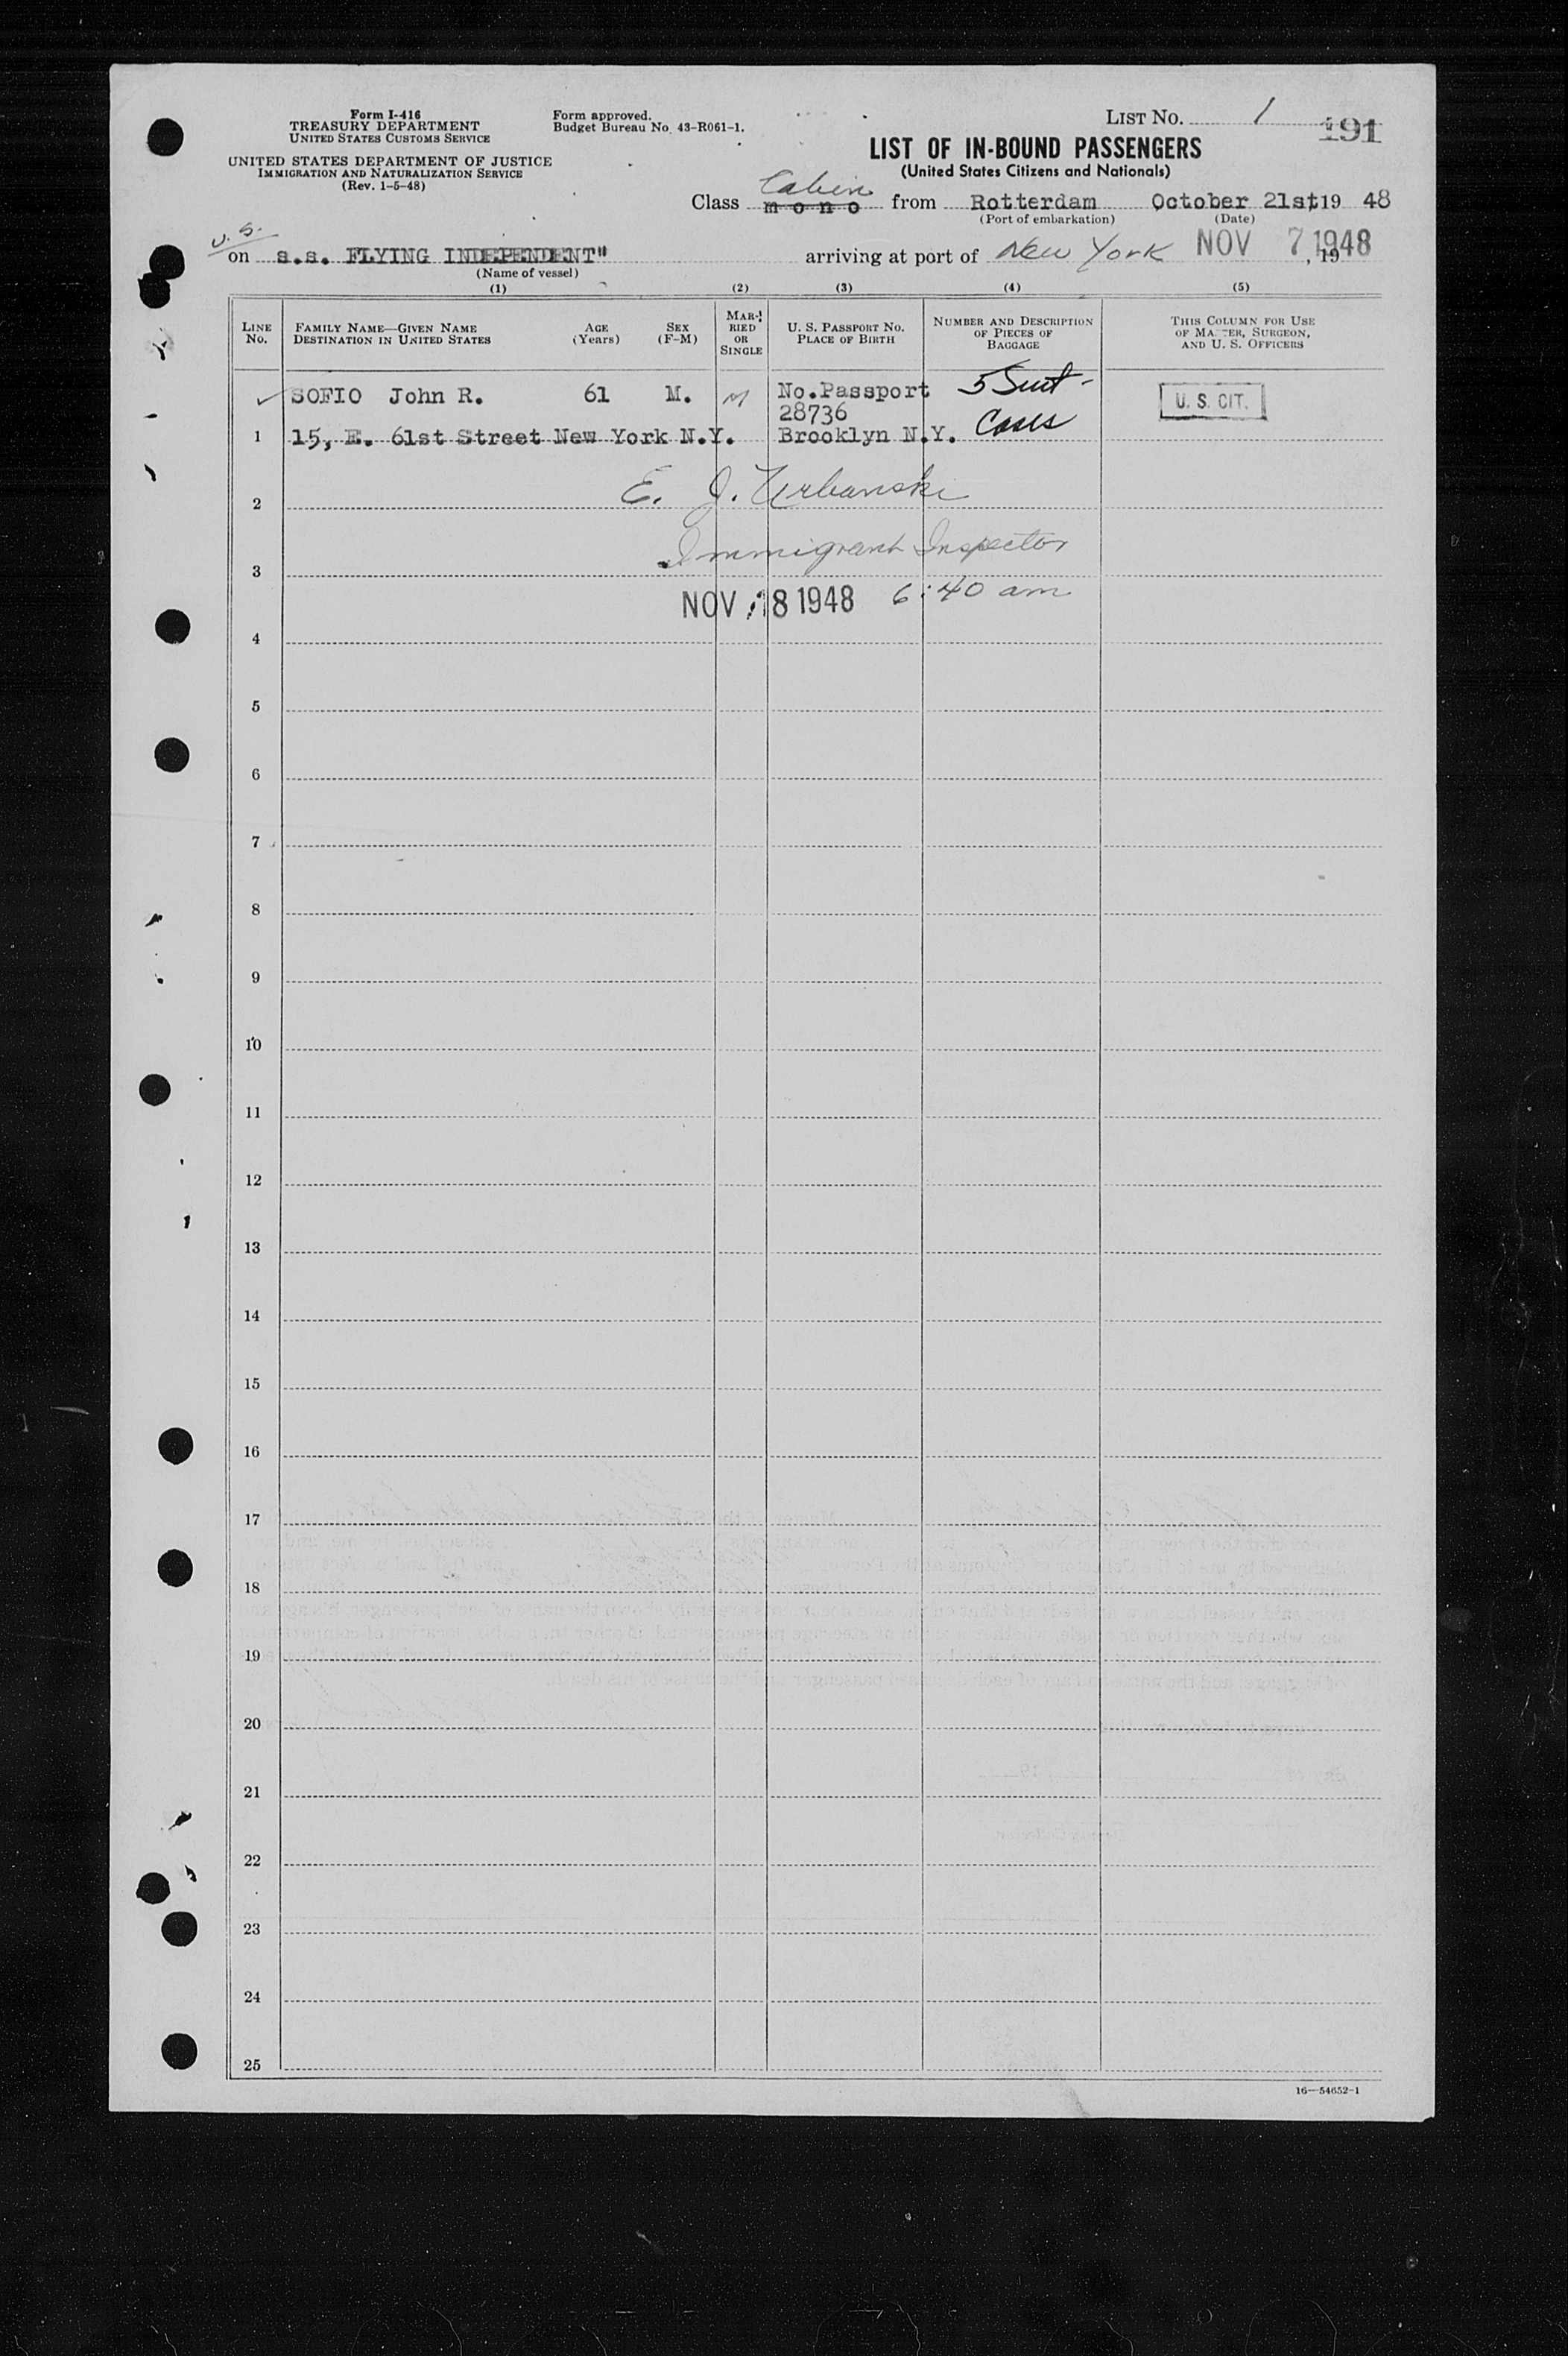 Form I-416
TREASURY DEPARTMENT
UNITED STATES CUSTOMS SERVICE
UNITED STATES DEPARTMENT OF JUSTICE
IMMIGRATION AND NATURALIZATION SERVICE
(Rev. 1-5-48)
Form approved.
Budget Bureau No. 43-R061-1.
LIST No. 1
191
LIST OF IN-BOUND PASSENGERS
(United States Citizens and Nationals)
Cabin
Class mono from Rotterdam October 21st, 19 48
(Port of embarkation) (Date)
U.S.
on s.s. FLYING INDEPENDENT" arriving at port of New York NOV 7 1948, 19
(Name of vessel)
(1) (2) (3) (4) (5)
LINE No.
FAMILY NAME—GIVEN NAME
DESTINATION IN UNITED STATES
AGE (Years)
SEX (F-M)
MARRIED OR SINGLE
U. S. PASSPORT No.
PLACE OF BIRTH
NUMBER AND DESCRIPTION OF PIECES OF BAGGAGE
THIS COLUMN FOR USE OF MASTER, SURGEON, AND U. S. OFFICERS
SOFIO John R. 61 M. M No.Passport 5 Suit-
28736 Cases
U. S. CIT.
1 15, E. 61st Street New York N.Y. Brooklyn N.Y.
E. J. Urbanski
2
Immigrant Inspector
3
NOV 8 1948 6:40 am
4
5
6
7
8
9
10
11
12
13
14
15
16
17
18
19
20
21
22
23
24
25
16—54652-1